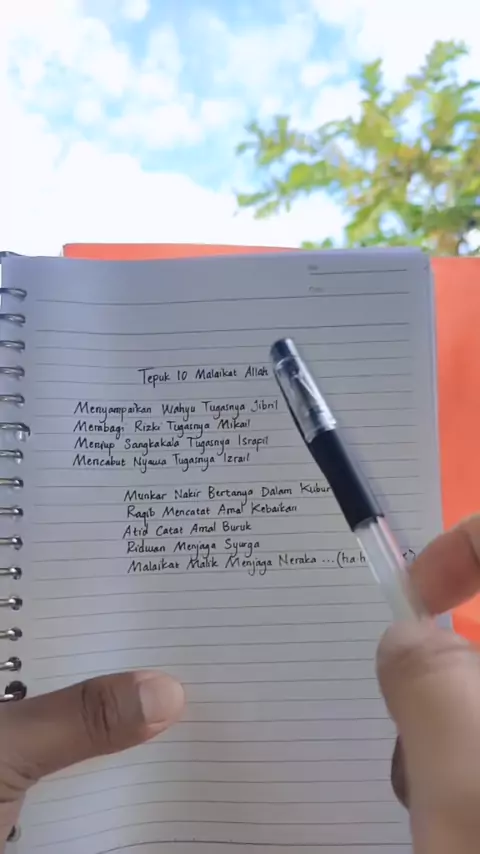 Tepuk 10 Malaikat Allah
Menyampaikan Wahyu Tugasnya Jibril
Membagi Rizki Tugasnya Mikail
Meniup Sangkakala Tugasnya Isrofil
Mencabut Nyawa Tugasnya Izrail
Munkar Nakir Bertanya Dalam Kubur
Raqib Mencatat Amal Kebaikan
Atid Catat Amal Buruk
Ridwan Menjaga Syurga
Malaikat Malik Menjaga Neraka ...